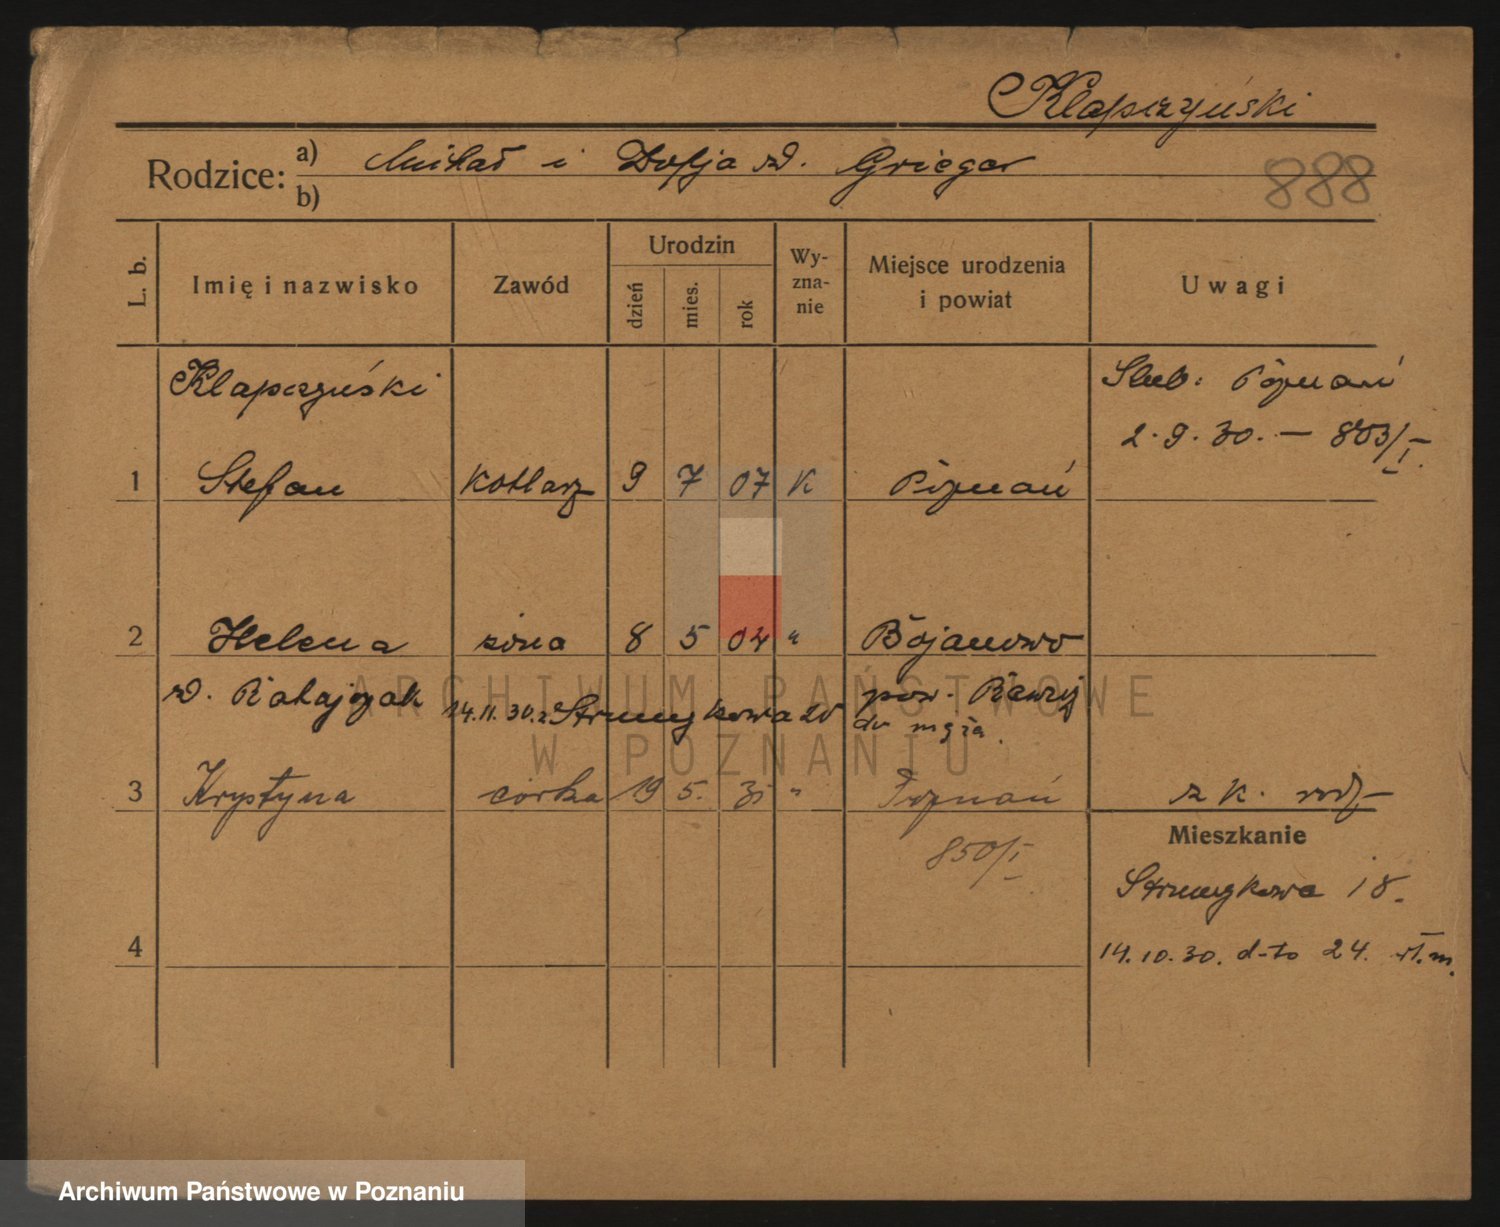 Klapczyński
Rodzice: a) Michał i Zofja zd. Grieger
b)
888
L. b.
Imię i nazwisko
Zawód
Urodzin
dzień
mies.
rok
Wy-
zna-
nie
Miejsce urodzenia
i powiat
Uwagi
Klapczyński
Ślub: Poznań
2.9.30. — 803/I.
1 Stefan kotlarz 9 7 07 K Poznań
2 Helena żona 8 5 04 " Bojanowo
zd. Ratajczak
14.11.30. z Strumykowa 20
pow. Rawicz
do męża.
3 Krystyna córka 19 5. 31 " Poznań z k. rodz
850/I
Mieszkanie
Strumykowa 18.
4
14.10.30. d-to 24. wł. m.
ARCHIWUM PAŃSTWOWE
W POZNANIU
Archiwum Państwowe w Poznaniu